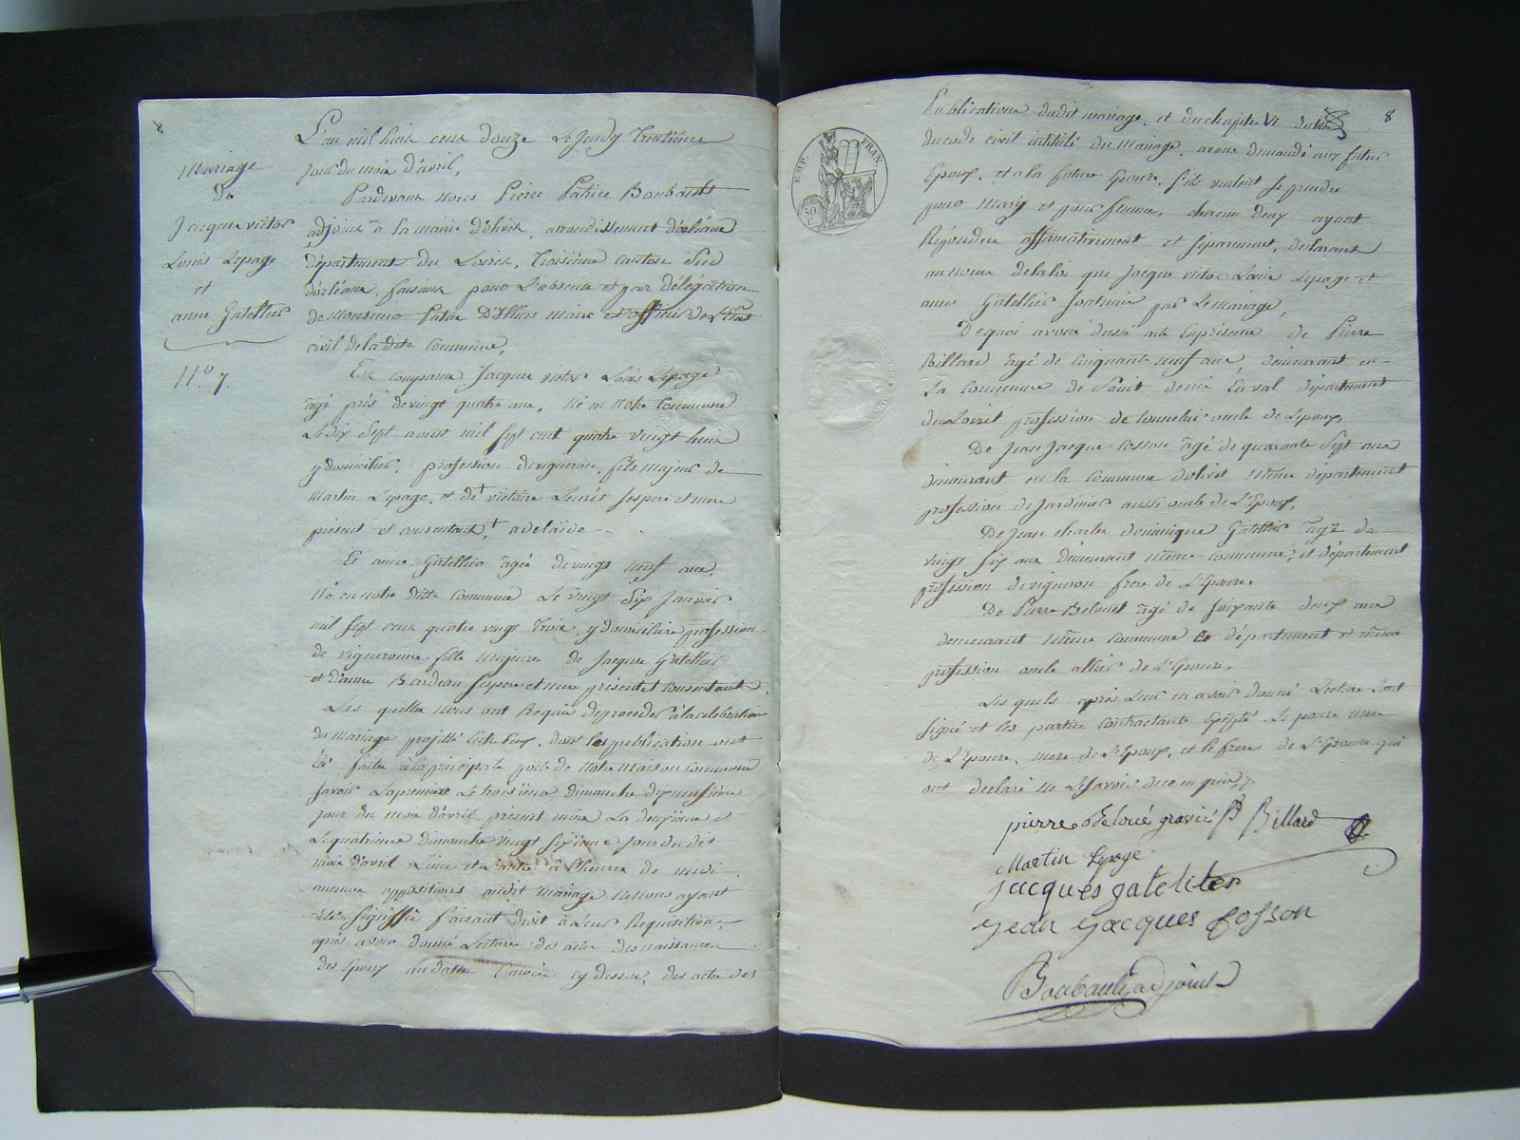 Mariage
De
Jacques victor
Louis Lepage
et
anne Gatellier
N.º 7.
L'an mil huit cent douze Le Jeudy Trentième
jour du mois d'avril,
Pardevant Nous Pierre Patrice Boubault
adjoint à la mairie d'olivet, arrondissement d'orléans
département du Loiret, troisième canton Sud
d'orléans, faisant pour L'absence et par délégation
de Monsieur maire et officier de L'Etat
civil de la dite Commune,
Est comparu Jacques victor Louis Lepage
agé près de vingt quatre ans, Né en Notre Commune
Le Dix Sept aoust mil Sept cent quatre vingt huit
y domicilié, profession de vigneron, fils Majeur de
Martin Lepage, et de † victoire Ses pere et mere
présent et consentant, † adelaide
Et anne Gatellier agée de vingt neuf ans,
Née en notre dite Commune Le vingt Six Janvier
mil Sept cent quatre vingt trois, y domiciliée profession
de vigneronne fille Majeure de Jacques Gatellier
et d'anne Bardeau Ses pere et mere présent et consentant,
Les quels nous ont Requis de proceder à la celebration
du mariage projetté entre Eux, dont les publications ont
été faites à la principale porte de Notre Maison commune
Savoir La premiere Le troisième dimanche
jour du mois d'avril présent mois La deuxième
Le quatrième dimanche vingt Sixième Jour du dit
mois d'avril L'une et L'autre à L'heure de midi
aucune oppositions audit Mariage Ne nous ayant
été Signiffié faisant droit à Leur Requisition,
après avoir donné Lecture des actes de naissances
des Epoux cy dessus, des actes des
8
EMP. FRAN.
50 C.
Publications dudit mariage, et du chapitre VI du titre
du code civil intitulé du Mariage, avons demandé aux futur
Epoux, et a la future Epouse, s'ils veulent se prendre
pour Mary et pour femme, chacun d'eux ayant
Répondu affirmativement et séparément, declarant
au nom de la loi que Jacques victor Louis Lepage et
anne Gatellier sont unis par Le Mariage,
De quoi avons dressé acte En présence de Pierre
Billard agé de Cinquante neuf ans, demeurant en
La Commune de Saint denis En val département
du Loiret profession de tonnelier oncle de L'epoux,
De Jean Jacques Cosson agé de quarante Sept ans
demeurant en la Commune d'olivet même département
profession de Jardinier aussi oncle de L'Epoux,
De Jean charles dominique Gatellier agé de
vingt Six ans Demeurant même Commune et département
profession de vigneron frere de L'Epouse
De Pierre Beloué agé de soixante deux ans
demeurant même Commune et département et même
profession oncle allié de L'Epouse,
Les quels après Leur en avoir donné Lecture Ont
Signé et les parties Contractantes Excepté mere
de L'Epouse, mere de L'Epoux, et le frere de L'Epouse qui
ont declaré ne Le Savoir de ce enquis,
pierre Beloué P Billard
Martin lepage
jacques gateliter
jean jacques Cosson
Boubault adjoint